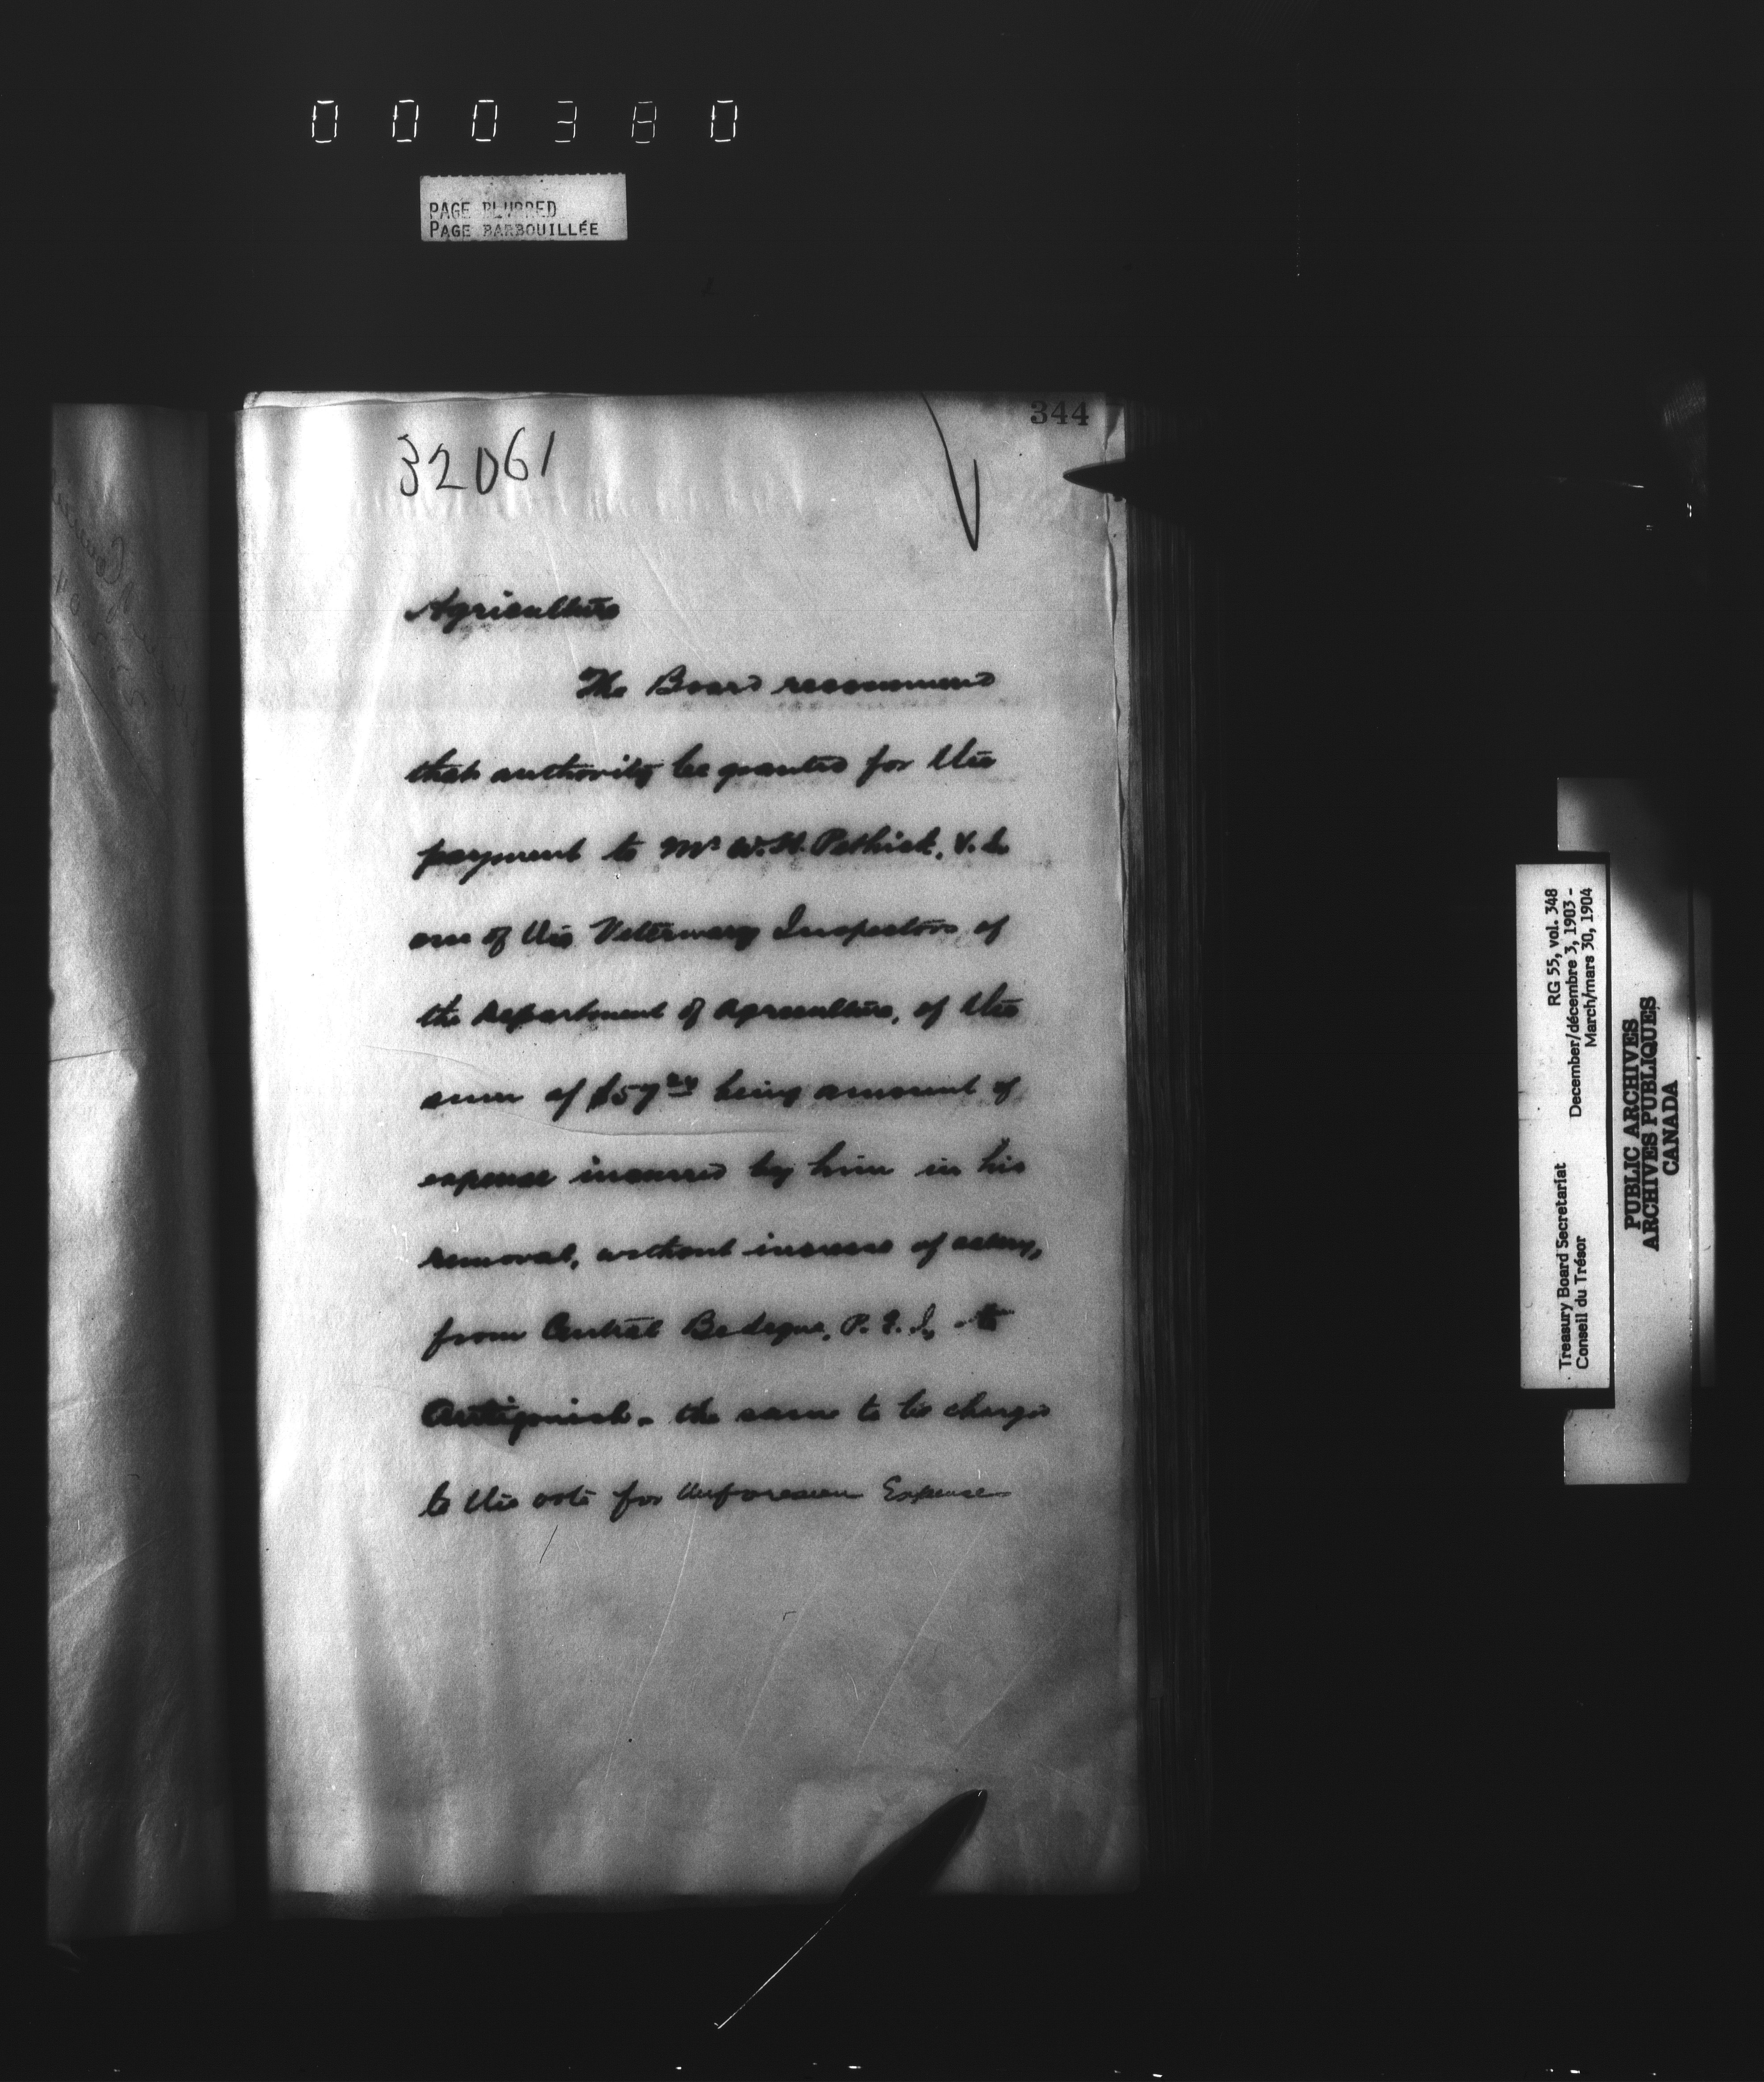 000380
PAGE BLURRED
PAGE BARBOUILLÉE
344
32061
Agriculture
The Board recommend
that authority be granted for the
payment to Mr W. H. Pethick, V. S.
one of the Veterinary Inspectors of
the Department of Agriculture, of the
sum of $57 being amount of
expense incurred by him in his
removal, without increase of salary,
from Central Bedeque, P. E. I., to
Antigonish - the same to be charged
to the vote for Unforeseen Expenses
Treasury Board Secretariat RG 55, vol. 348
Conseil du Trésor December/décembre 3, 1903 -
March/mars 30, 1904
PUBLIC ARCHIVES
ARCHIVES PUBLIQUES
CANADA